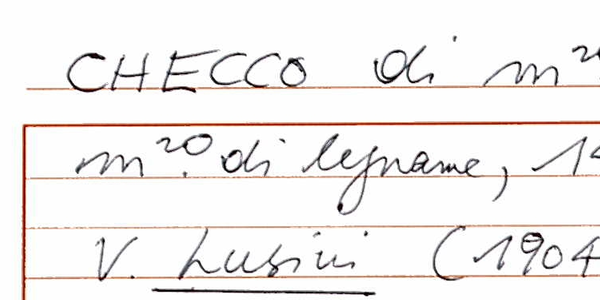 CHECCO di m
m.ro di legname, 14
V. Lusini (1904